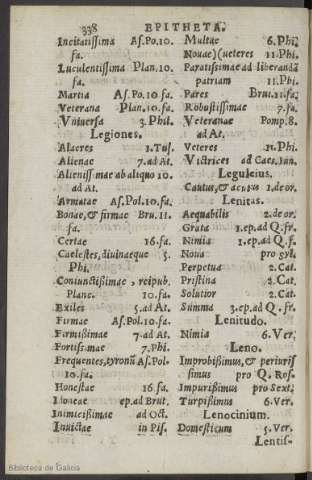 338 EPITHETA.
Incitatissima As.Po.10.
fa.
Luculentissima Plan.10.
fa.
Martia As.Po.10 fa.
Veterana Plan.10.fa.
Vniuersa 3.Phil.
Legiones.
Alacres 1.Tus.
Alienae 7.ad At.
Alienissimae ab aliquo 10.
ad At.
Armatae As.Pol.10.fa.
Bonae, & firmae Bru.11.
fa.
Certae 16.fa.
Caelestes, diuinaeque 5.
Phi.
Coniunctissimae, reipub.
Planc. 10.fa.
Exiles 5.ad At.
Firmae As.Pol.10.fa.
Firmissimae 7.ad At.
Fortissimae 7.Phi.
Frequentes, tyronū As.Pol.
10.fa.
Honestae 16.fa.
Idoneae ep.ad Brut.
Inimicissimae ad Oct.
Inuictae in Pis.
Multae 6.Phi.
Nouae)(ueteres 11.Phi.
Paratissimae ad liberandā
patriam 11.Phi.
Pares Brut.11.fa.
Robustissimae 7.fa.
Veteranae Pomp.8.
ad At.
Veteres 11.Phi.
Victrices ad Caes.Iun.
Leguleius.
Cautus, & acutus 1.de or.
Lenitas.
Aequabilis 2.de or.
Grata 1.ep.ad Q.fr.
Nimia 1.ep.ad Q.f.
Noua pro syl.
Perpetua 2.Cat.
Pristina 2.Cat.
Solutior 2.Cat.
Summa 3.ep.ad Q.fr.
Lenitudo.
Nimia 6.Ver.
Leno.
Improbissimus, & periuris
simus pro Q.Ros.
Impurissimus pro Sext.
Turpissimus 6.Ver.
Lenocinium.
Domesticum 5.Ver.
Lentis-
Biblioteca de Galicia